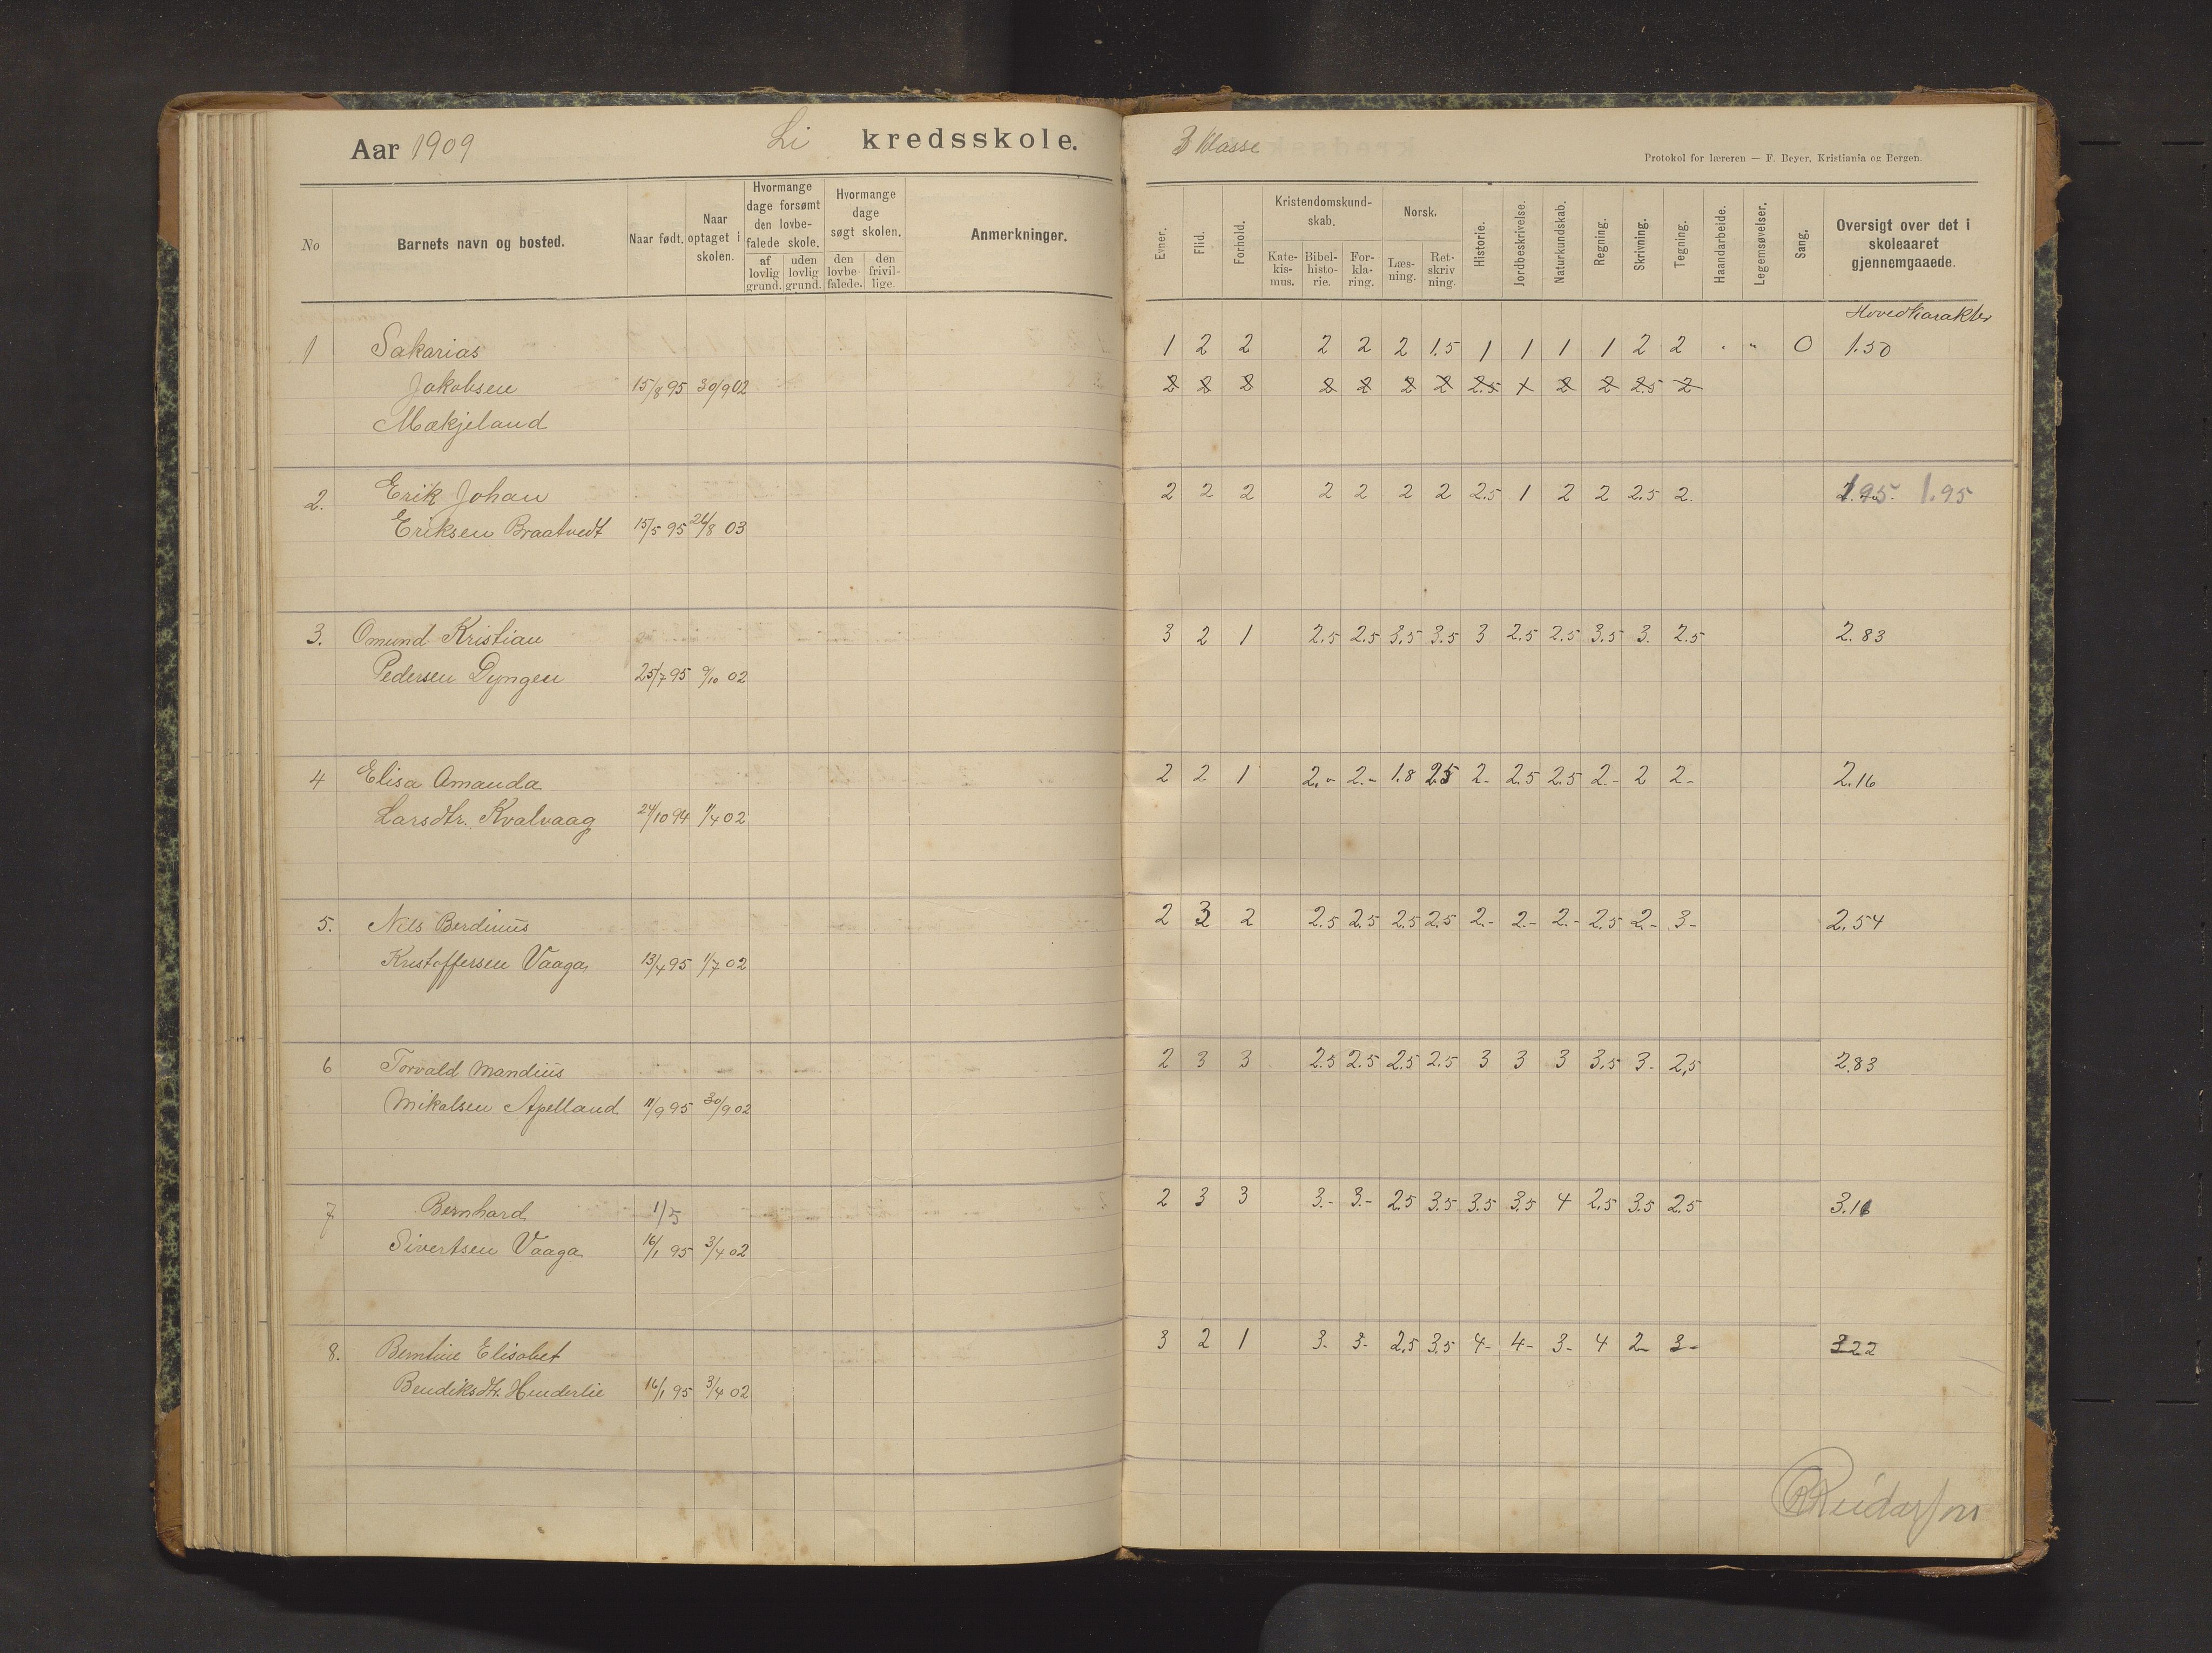 Aar 1909 Li kredsskole.
3 klasse
Protokol for læreren — F. Beyer, Kristiania og Bergen.
No Barnets navn og bosted. Naar født. Naar optaget i skolen. Hvormange dage forsømt den lovbefalede skole. af lovlig grund. uden lovlig grund. Hvormange dage søgt skolen. den lovbefalede. den frivillige. Anmerkninger.
Evner. Flid. Forhold. Kristendomskundskab. Katekismus. Bibelhistorie. Forklaring. Norsk. Læsning. Retskrivning. Historie. Jordbeskrivelse. Naturkundskab. Regning. Skrivning. Tegning. Haandarbeide. Legemsøvelser. Sang. Oversigt over det i skoleaaret gjennemgaaede.
Hovedkarakter
1 Sakarias 1 2 2 2 2 2 1.5 1 1 1 1 2 2 . " 0 1.50
Jakobsen 15/8 95 30/9 02 2 2 2 2 2 2 2 2.5 1 2 2 2.5 2
Mækjeland
2. Erik Johan 2 2 2 2 2 2 2 2.5 1 2 2 2.5 2. 1.95 1.95
Eriksen Braatvedt 15/5 95 26/8 03
3. Omund Kristian 3 2 1 2.5 2.5 3.5 3.5 3 2.5 2.5 3.5 3. 2.5 2.83
Pedersen Dyngen 25/7 95 9/10 02
4 Elisa Amanda 2 2 1 2.- 2.- 1.8 2.5 2- 2.5 2.5 2.- 2 2- 2.16
Larsdtr. Kvalvaag 24/10 94 1/4 02
5. Nils Berdinus 2 3 2 2.5 2.5 2.5 2.5 2.- 2.- 2.- 2.5 2.- 3- 2.54
Kristoffersen Vaaga 13/4 95 1/7 02
6 Torvald Mandius 2 3 3 2.5 2.5 2.5 2.5 3 3 3 3.5 3- 2,5 2.83
Mikalsen Apelland 11/9 95 30/9 02
7 Bernhard 1/5 2 3 3 3.- 3.- 2.5 3.5 3.5 3.5 4 2.5 3.5 2.5 3.16
Sivertsen Vaaga 16/1 95 3/4 02
8. Berntine Elisabet 3 2 1 3- 3- 2.5 3.5 4- 4- 3- 4 2- 3- 3.22
Bendiksdtr. Henderlie 16/1 95 3/4 02